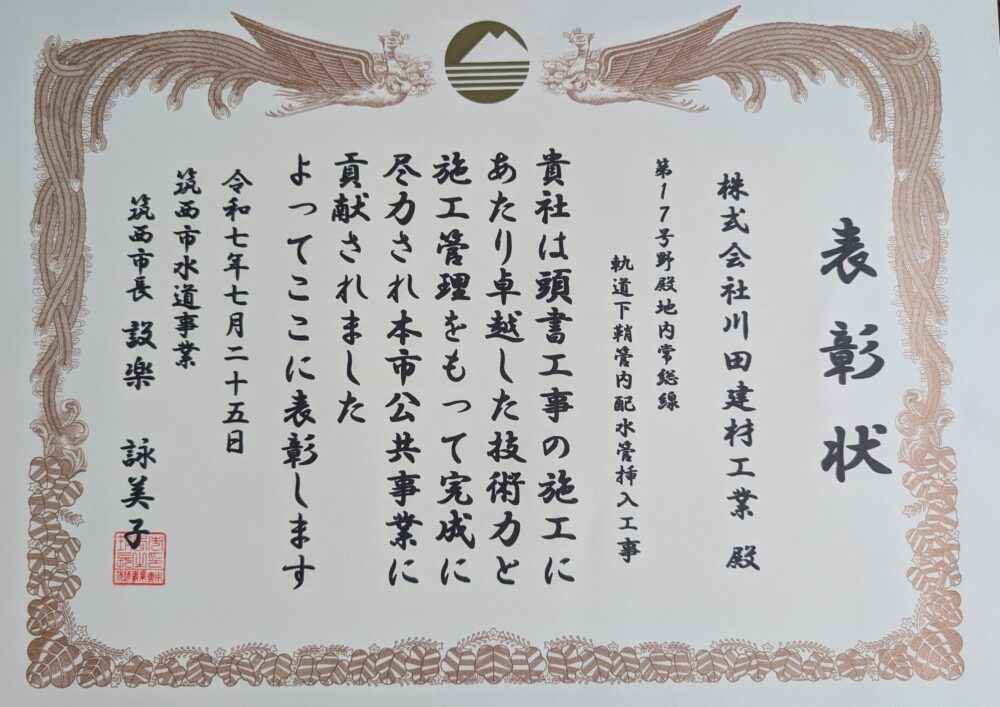 表彰状
株式会社川田建村工業 殿
第17号野殿地内常総線
軌道下鞘管内配水管挿入工事
貴社は頭書工事の施工に
あたり卓越した技術力と
施工管理をもって完成に
尽力され本市公共事業に
貢献されました
よってここに表彰します
令和七年七月二十五日
筑西市水道事業
筑西市長 設楽 詠美子